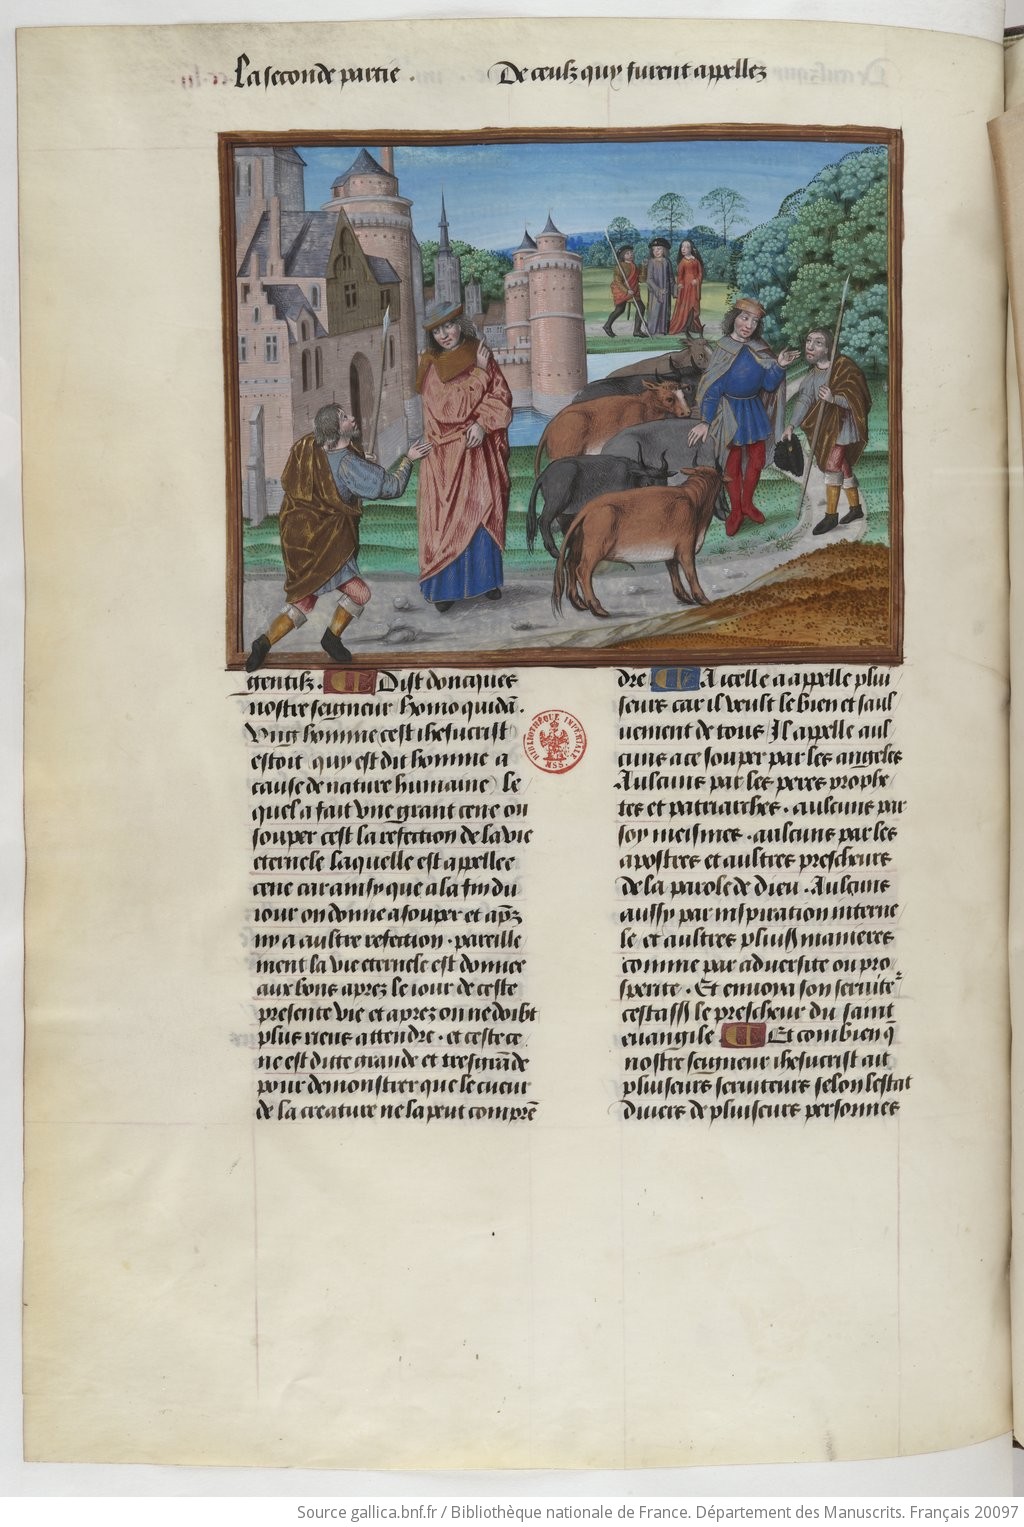 La seconde partie . De ceulz quy furent appellez
gentilz . Dist doncques
nostre seigneur homo quidā .
Vng homme cest ihesucrist
estoit quy est dit homme a
cause de nature humaine / le
quel a fait vne grant cene ou
souper cest la refection de la vie
eternele laquelle est appellee
cene car ainsy que a la fin du
iour on donne a souper et ap̄z
ny a aultre refection . pareille
ment la vie eternele est donnee
aux bons aprez le iour de ceste
presente vie et aprez on ne doibt
plus riens attendre . et ceste ce
ne est ditte grande et tresgrāde
pour demonstrer que le cueur
de la creature ne la peut comprē
dre A icelle a appelle plui
seurs car il veult le bien et saul
uement de tous / Il appelle aul
cuns a ce souper par les angeles
Aulcuns par les peres prophe
tes et patriarches . aulcuns par
soy meismes . aulcuns par les
apostres et aultres prescheurs
de la parole de dieu . Aulcuns
aussy par inspiration interne
le et aultres manieres
comme par aduersite ou pro
sperite . Et enuoya son
le prescheur du saint
euangile Et combien q̄
nostre seigneur ihesucrist ait
pluiseurs seruiteurs selon lestat
diuers de pluiseurs personnes
BIBLIOTHÈQUE IMPÉRIALE
MSS.
Source gallica.bnf.fr / Bibliothèque nationale de France. Département des Manuscrits. Français 20097